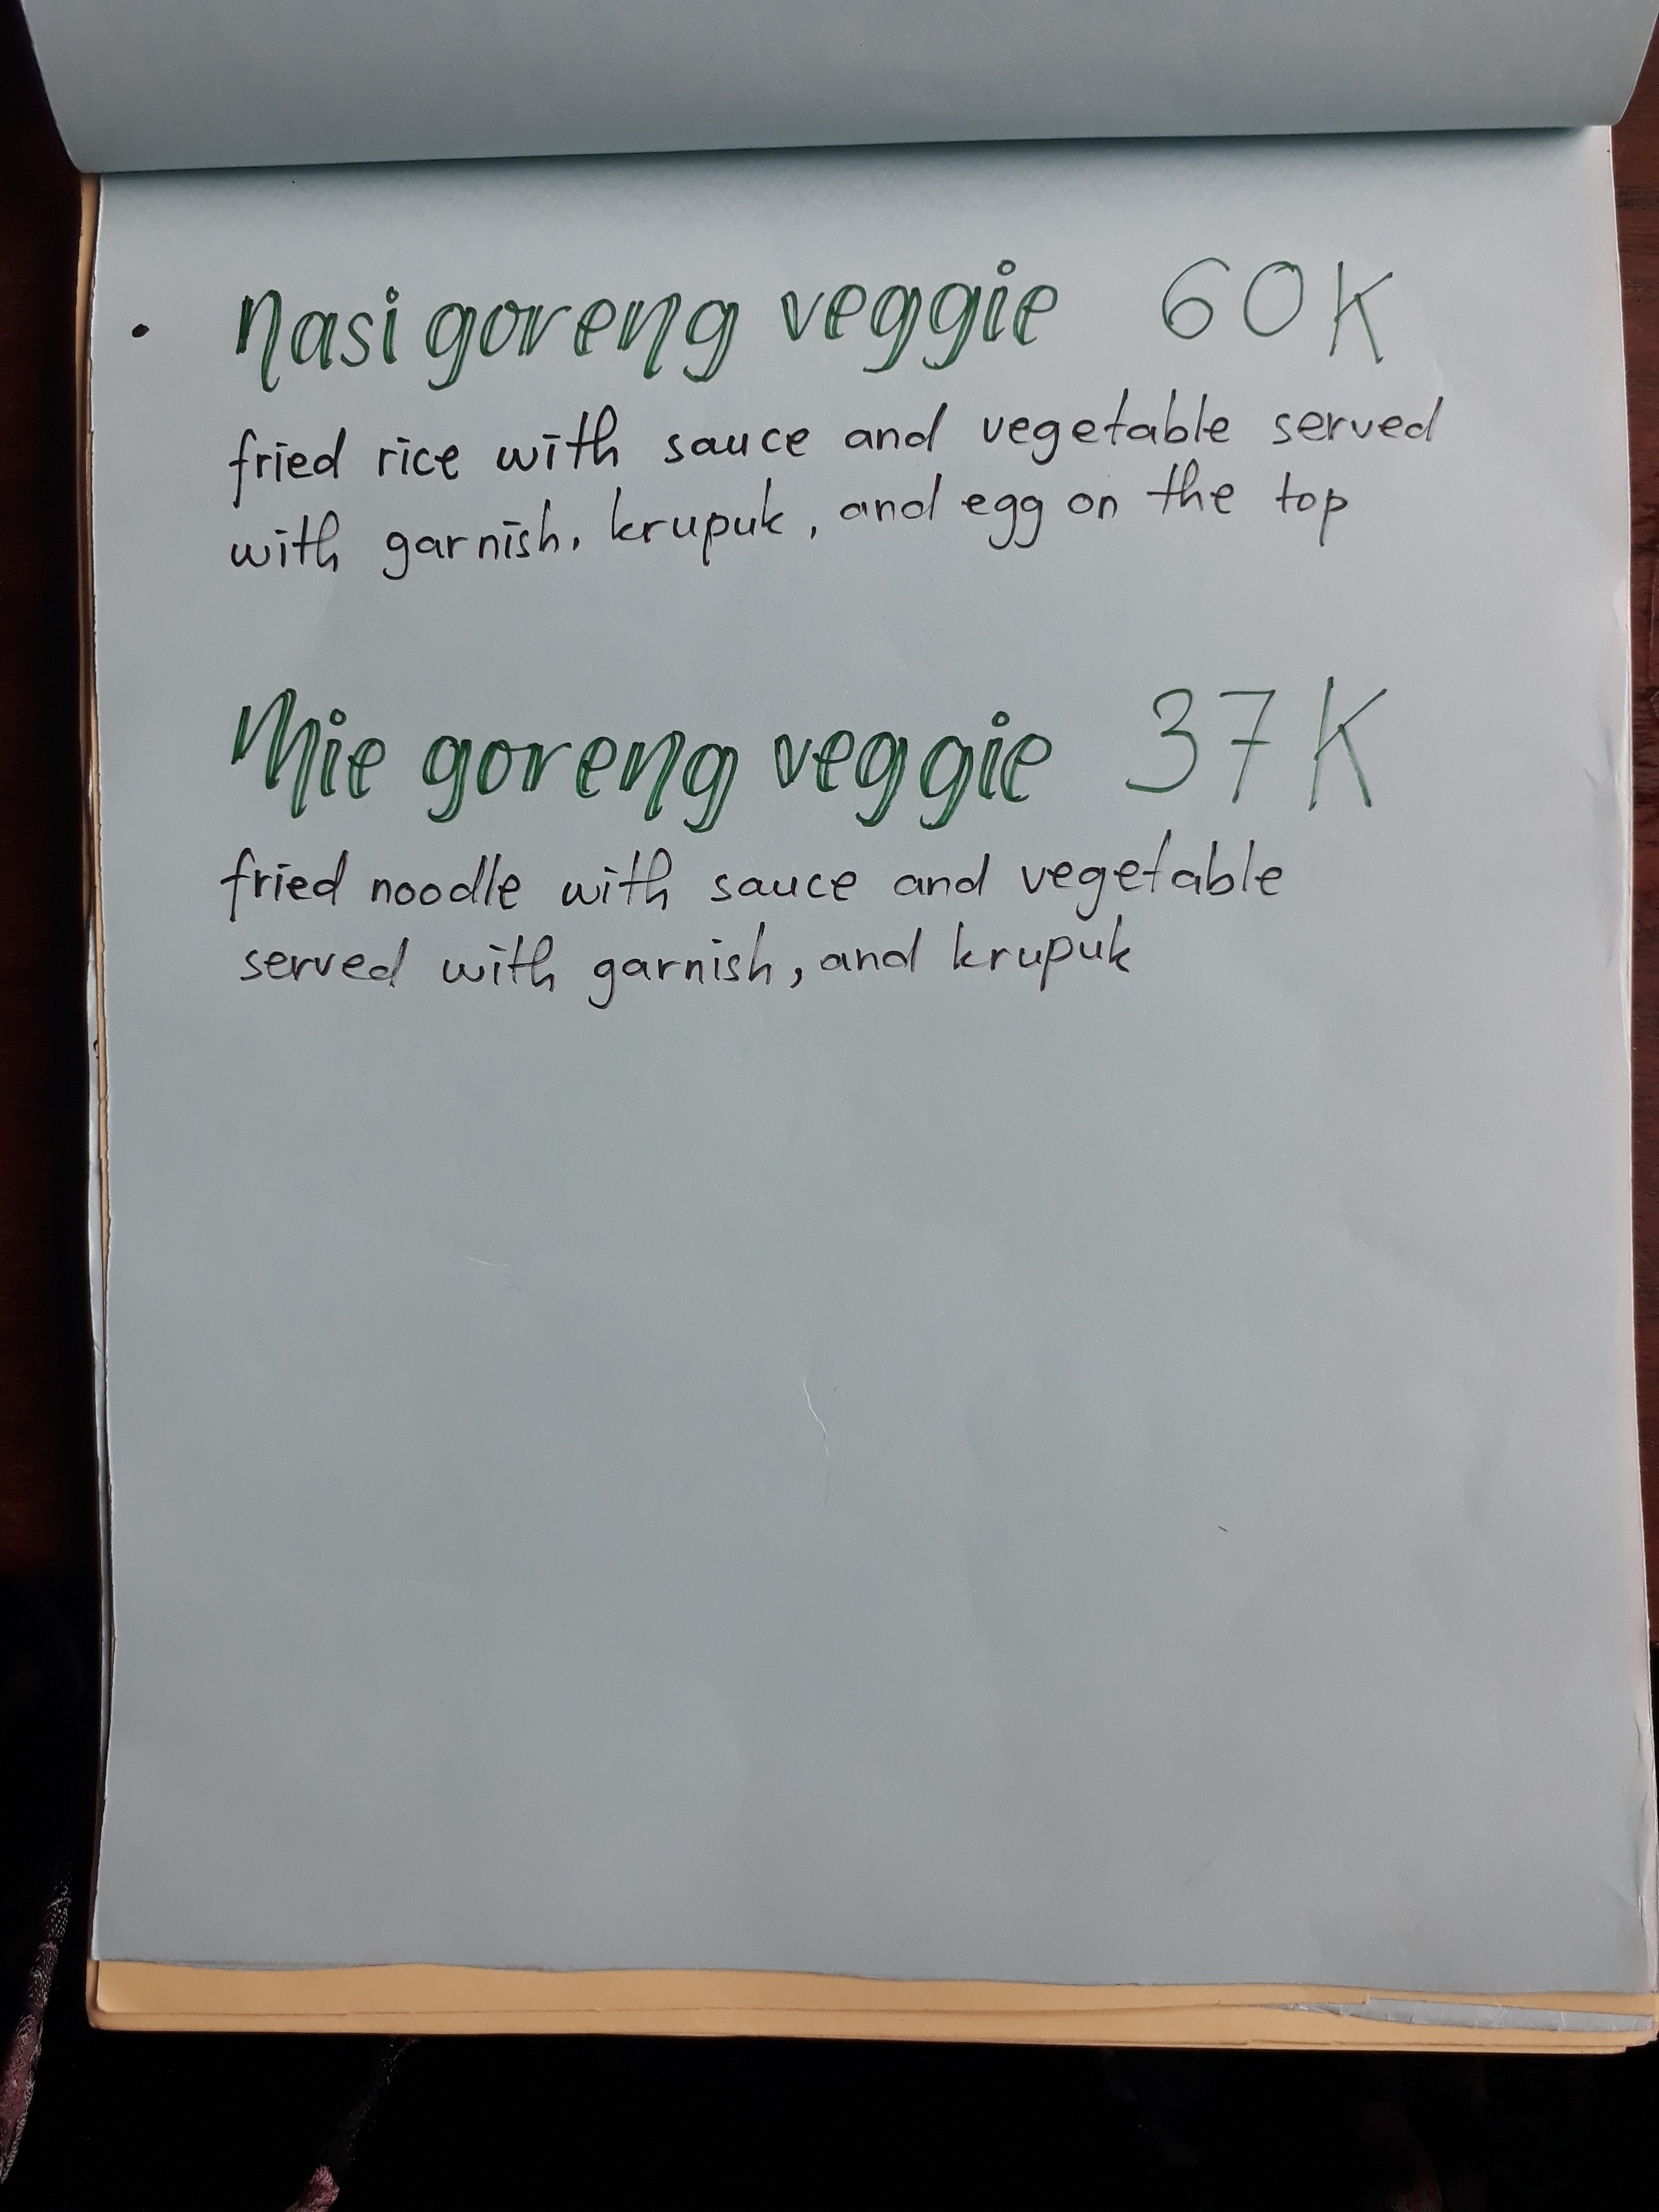 • Nasi goreng veggie 60K
fried rice with sauce and vegetable served
with garnish, krupuk, and egg on the top
Mie goreng veggie 37K
fried noodle with sauce and vegetable
served with garnish, and krupuk